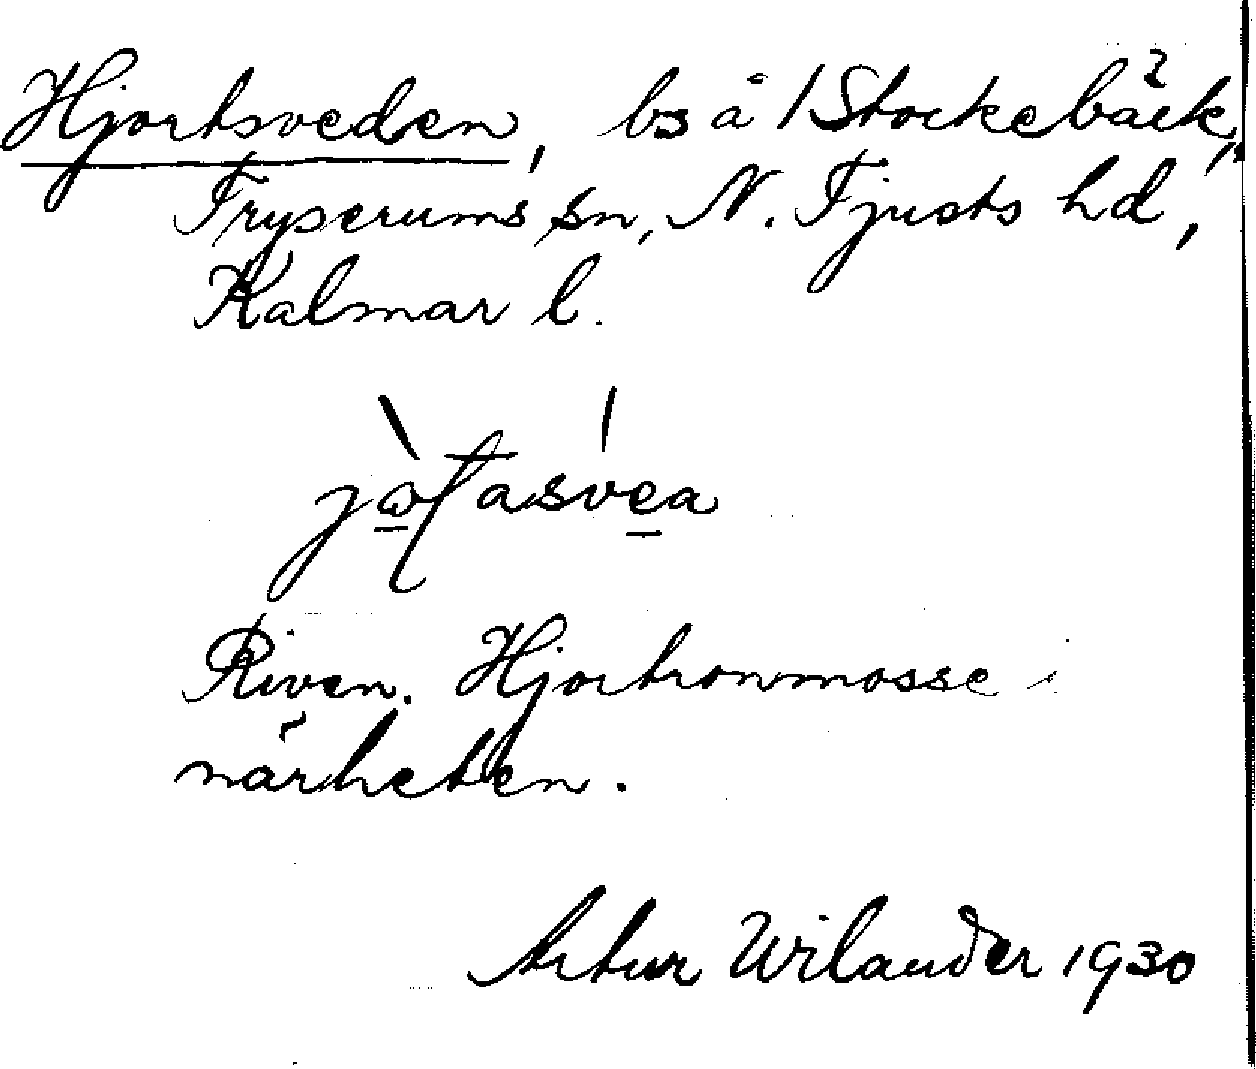 Hjortsveden, bs å 1 Stockebäck,
Tryserums sn, N. Tjusts hd,
Kalmar l.
Riven. Hjortronmosse i
närheten.
Artur Wilander 1930